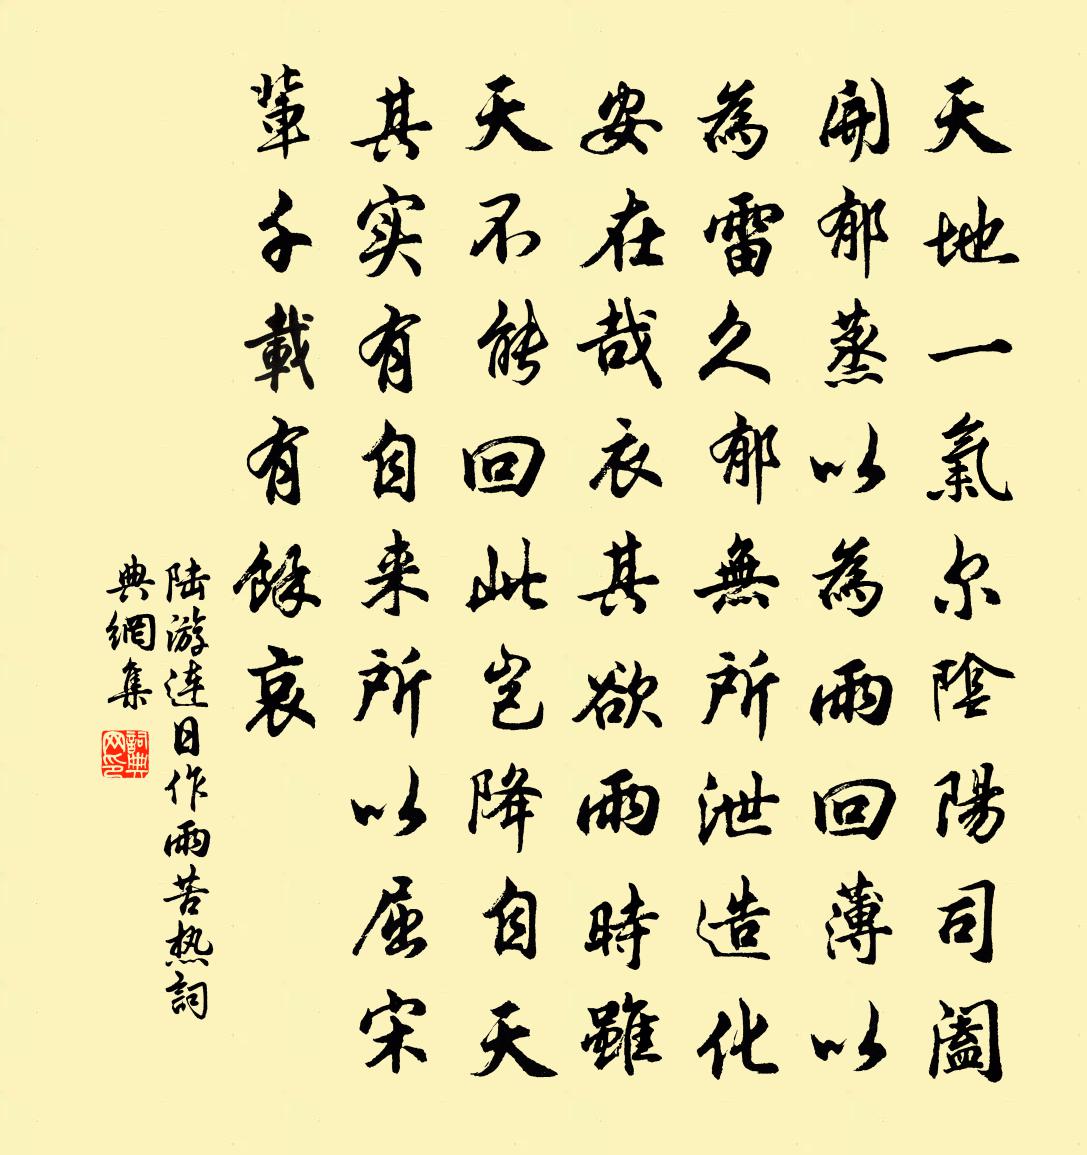 天地一氣尔陰陽司阖
開郁蒸以為雨回薄以
為雷久郁無所泄造化
安在哉衣其欲雨時雖
天不能回此岂降自天
其实有自来所以屈宋
輩千載有餘哀
陆游连日作雨苦热詞
典網集
詞典网印